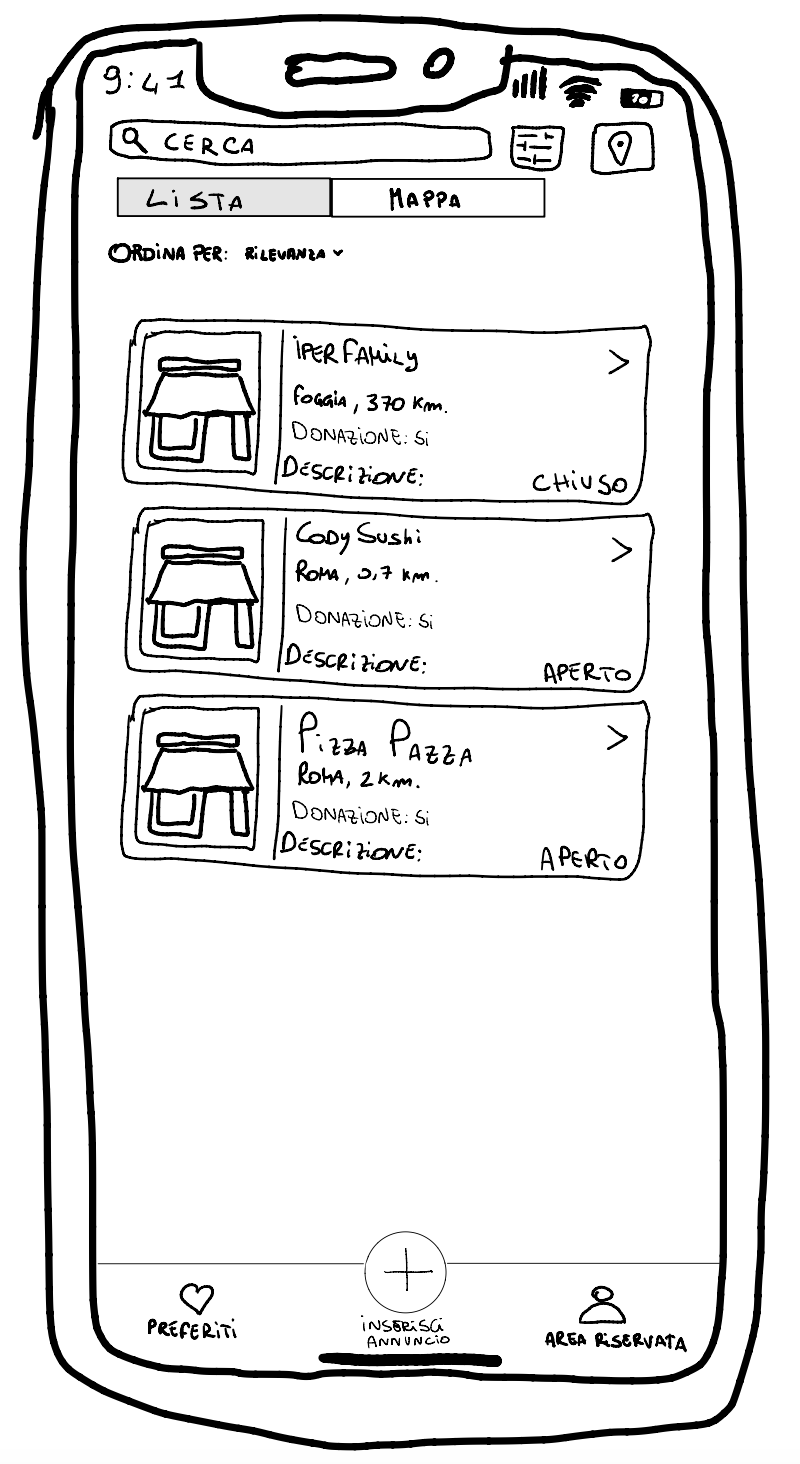 9:41
CERCA
LiSTA MAPPA
ORDiNA PER: RiLEVANZA
iPER FAMily
FOGGiA, 370 Km.
DONAZiONE: Si
DESCRiZiONE:
CHiUSO
CoDy SusHi
ROMA, 0,7 Km.
DONAZiONE: Si
DESCRiZiONE:
APERTO
PiZZA PAZZA
ROMA, 2 Km.
DONAZiONE: Si
DESCRiZiONE:
APERTO
PREFERiTi
iNSERiSCi
ANNUNCiO
AREA RiSERVATA